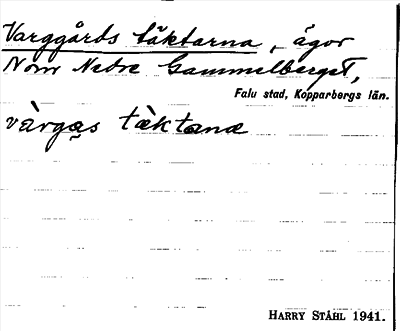 Varggårds täktarna, ägor
Nom Nedre Gammelberget,
Falu stad, Kopparbergs län.
vàrgas tæ̀ktanæ
HARRY STÅHL 1941.